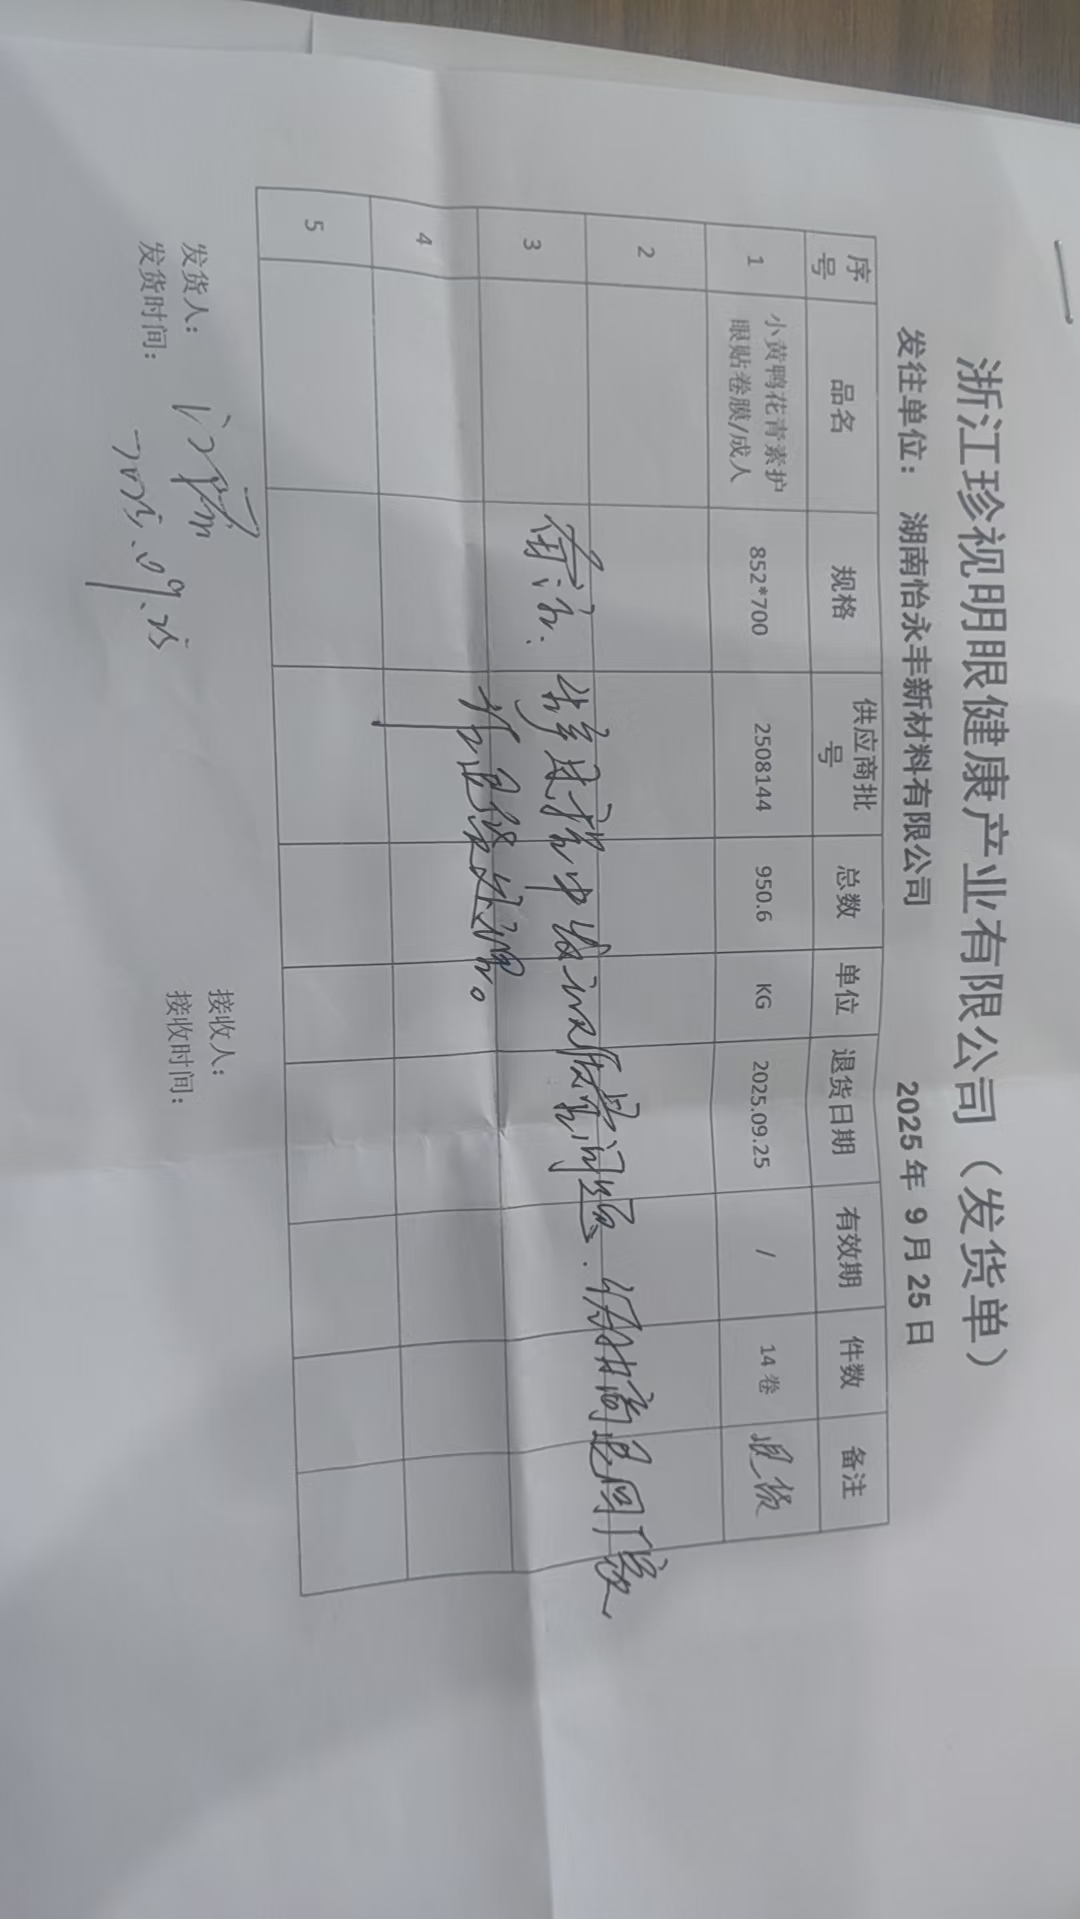 浙江珍视明眼健康产业有限公司（发货单）
发往单位： 湖南怡永丰新材料有限公司 2025年 9月25日
序号 品名 规格 供应商批号 总数 单位 退货日期 有效期 件数 备注
1 小黄鸭花青素护眼贴卷膜/成人 852*700 2508144 950.6 KG 2025.09.25 / 14卷 退货
2
3
备注： 中发现质量问题. 退回厂家
退货处理。
4
5
发货人： 接收人：
发货时间： 2025.09.25 接收时间：